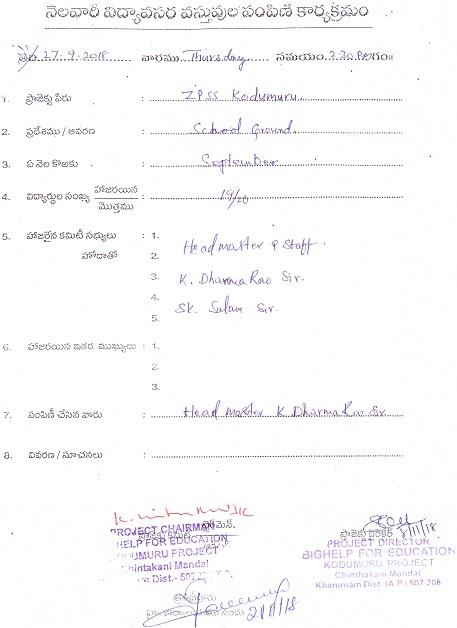 నెలవారీ విద్యావసర వస్తువుల పంపిణీ కార్యక్రమం
తేది 27-9-2018 వారము Thursday సమయం 2.30 PM గం॥
1. ప్రాజెక్టు పేరు : ZPSS Kodumuru
2. ప్రదేశము / ఆవరణ : School Ground.
3. ఏ నెల కొఱకు : September
4. విద్యార్థుల సంఖ్య హాజరయిన : 19/20
మొత్తము
5. హాజరైన కమిటీ సభ్యులు : 1.
హోదాతో 2. Headmaster & Staff.
3. K. Dharma Rao Sir.
4.
5. SK. Salam Sir.
6. హాజరయిన ఇతర ముఖ్యులు : 1.
2.
3.
7. పంపిణీ చేసిన వారు : Head master K. Dharma Rao Sir
8. వివరణ / సూచనలు :
PROJECT CHAIRMAN
BIGHELP FOR EDUCATION
KODUMURU PROJECT
Chinthakani Mandal
Dist.- 507
8/11/18
PROJECT DIRECTOR
BIGHELP FOR EDUCATION
KODUMURU PROJECT
Chinthakani Mandal
Khammam Dist. (A.P.) 507 208
21/11/18